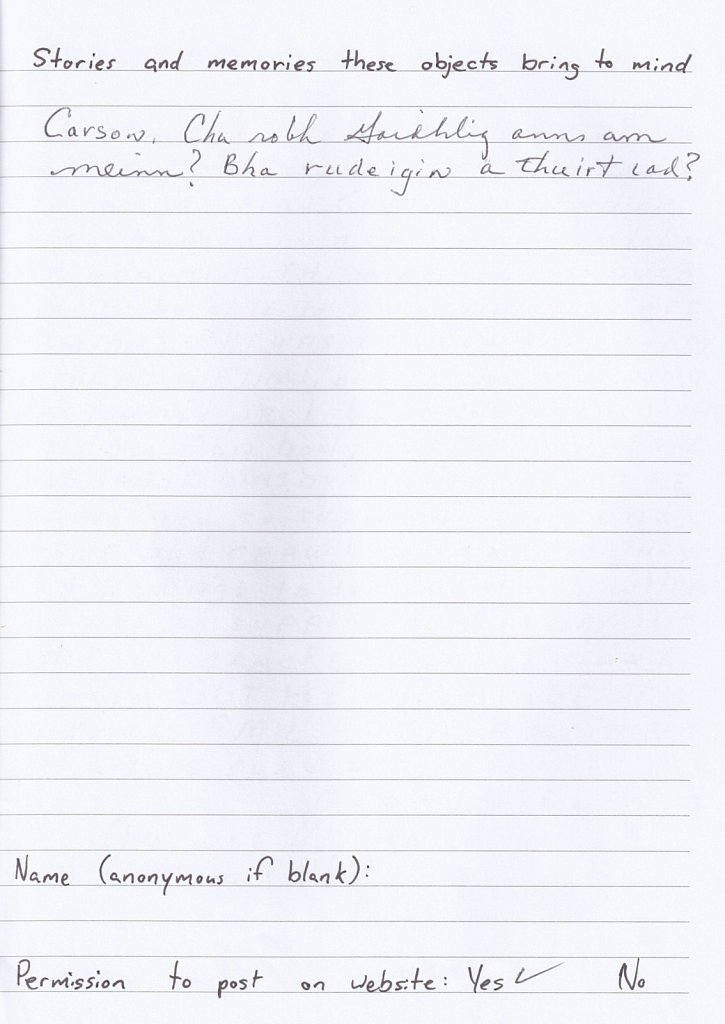 Stories and memories these objects bring to mind
Carson, Cha robh Gaidhlig anns am
meinn? Bha rudeigin a thuirt iad?
Name (anonymous if blank):
Permission to post on website: Yes ✓ No